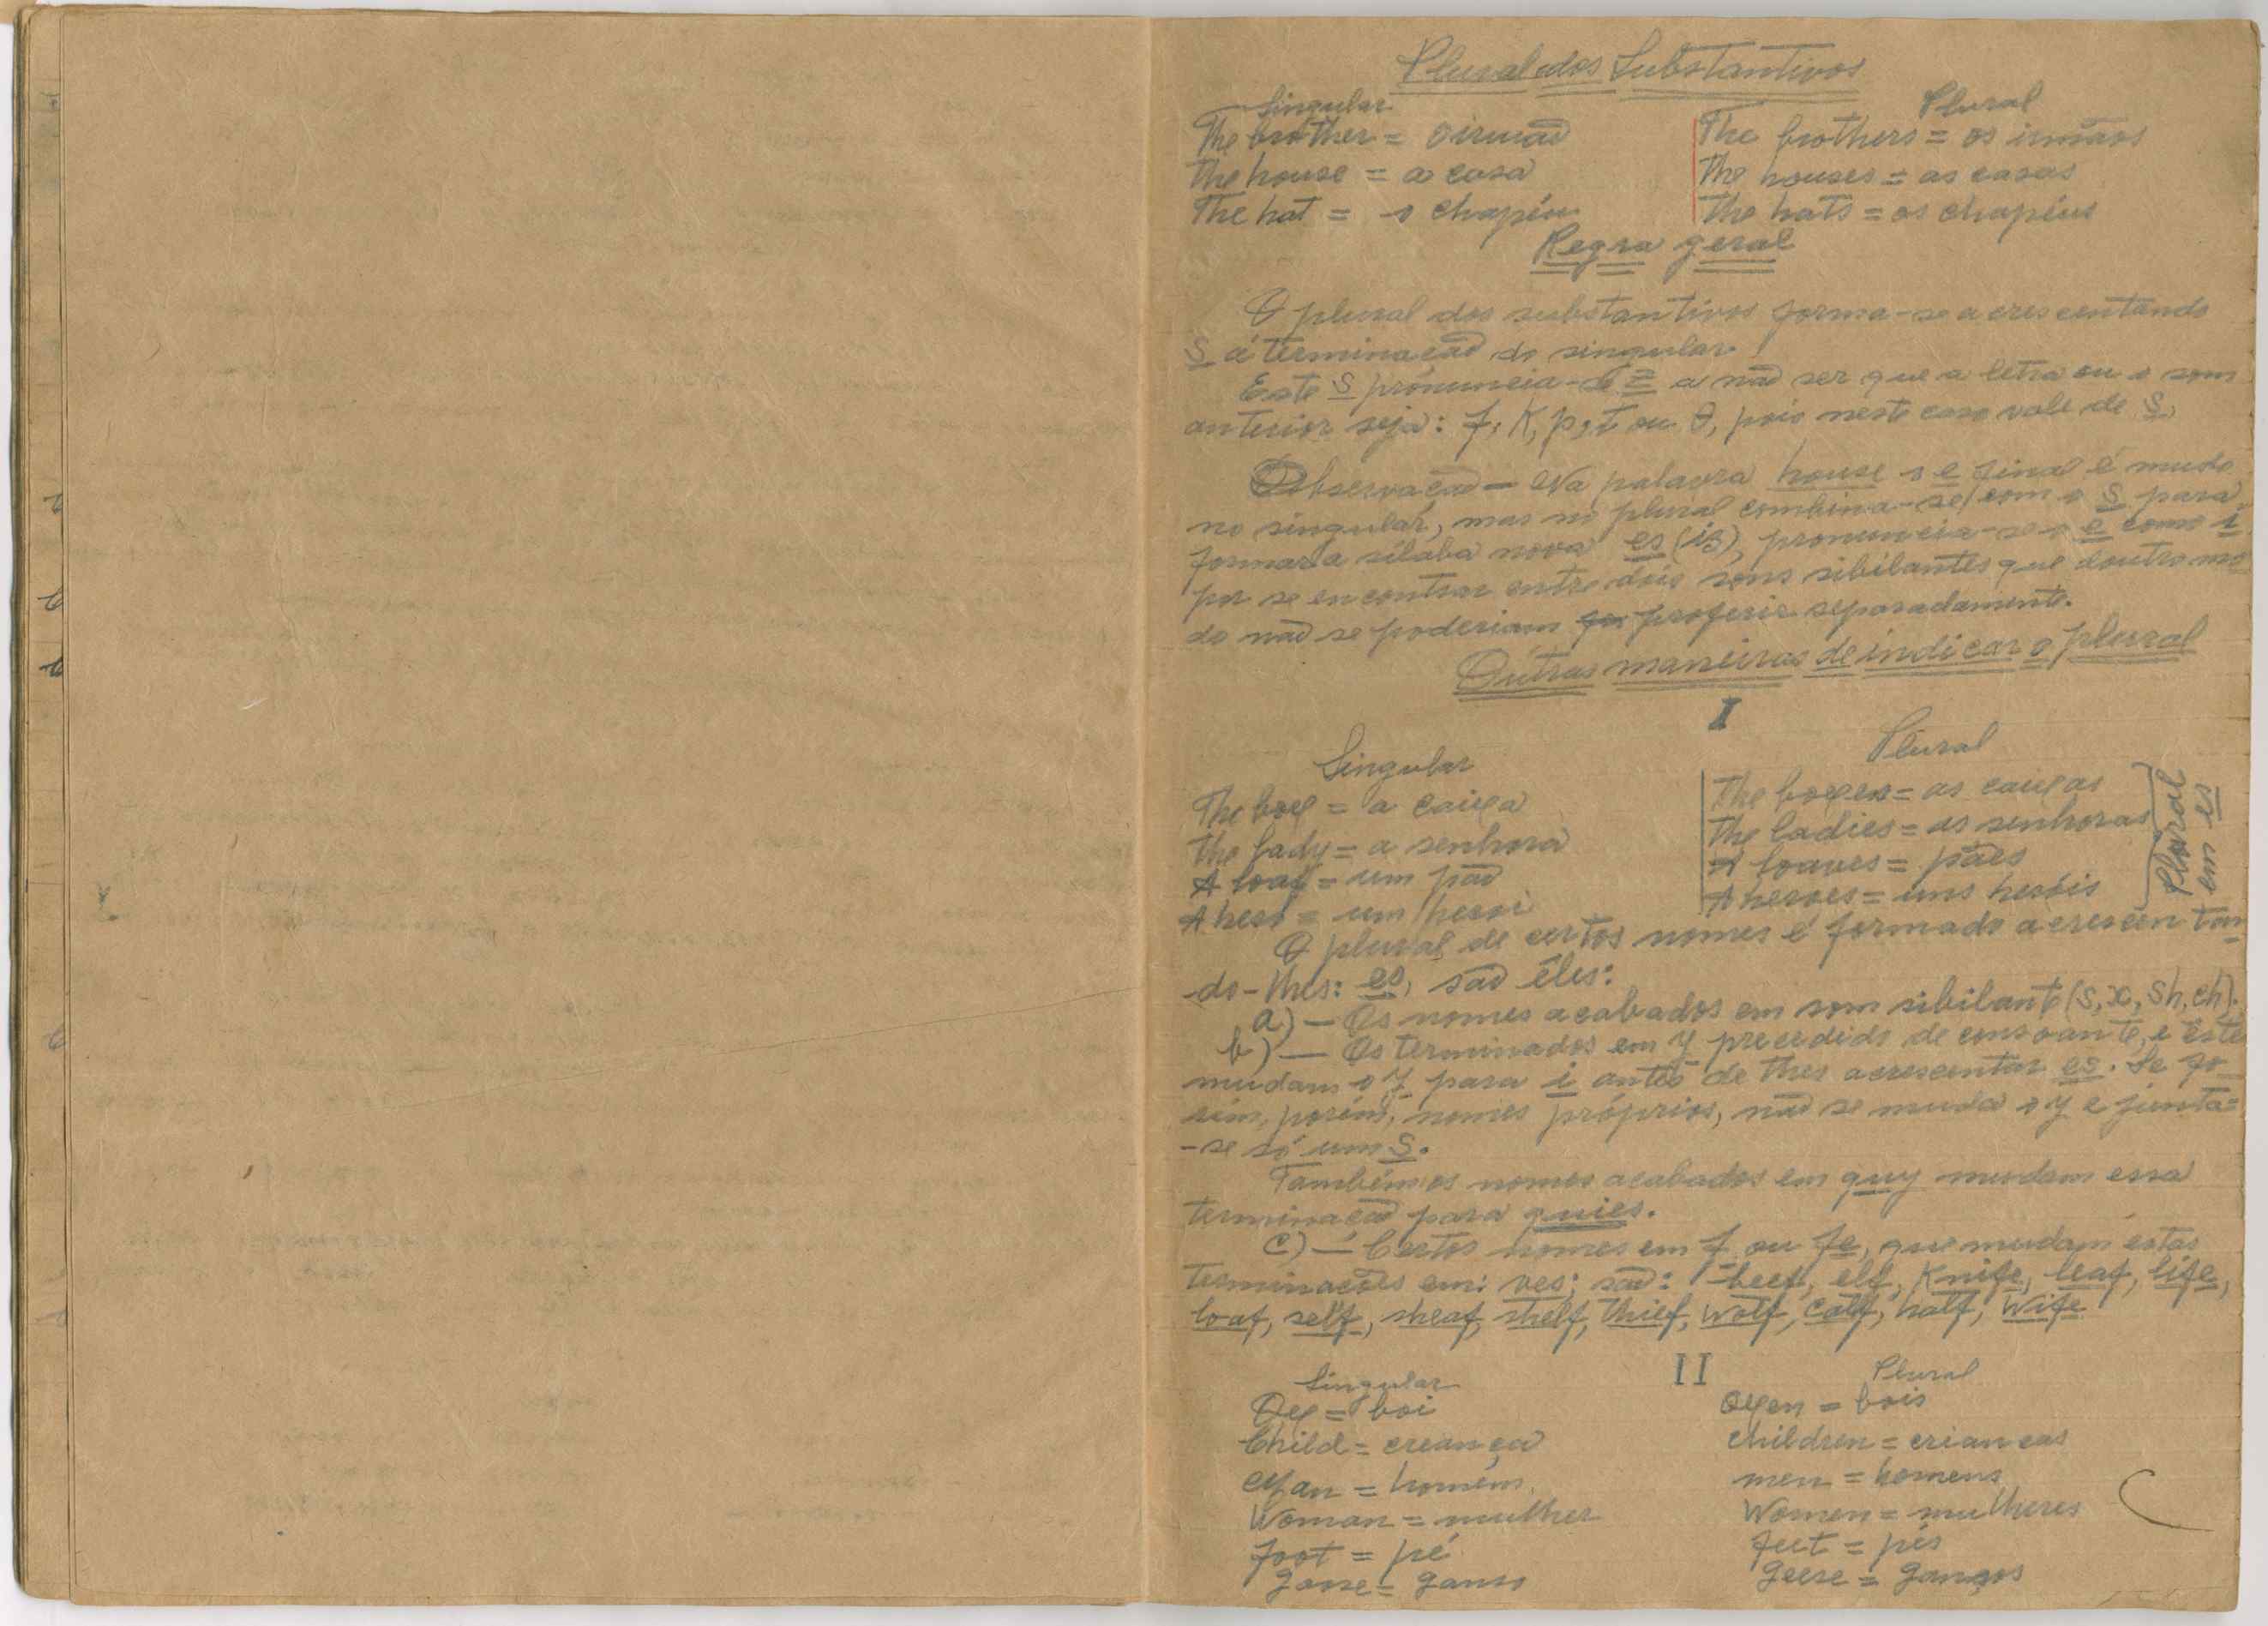 Plural dos Substantivos
Singular Plural
The brother = o irmão The brothers = os irmãos
The house = a casa The houses = as casas
The hat = o chapéu The hats = os chapéus
Regra geral
O plural dos substantivos forma-se acrescentando
S á terminação do singular.
Este S pronuncia-se z a não ser que a letra ou o som
anterior seja: f, K, p, t ou θ, pois neste caso vale de S.
Observação — Na palavra house o e final é mudo
no singular, mas no plural combina-se com o S para
formar a sílaba nova es (iz), pronuncia-se o e como i
por se encontrar entre dois sons sibilantes que doutro mo
do não se poderiam proferir separadamente.
Outras maneiras de indicar o plural
I
Singular Plural
The box = a caixa The boxes = as caixas
The lady = a senhora The ladies = as senhoras
A loaf = um pão A loaves = pães
A hero = um heroi A heroes = uns heróis
Plural
em es
O plural de certos nomes é formado acrescentan
do-lhes: es, são êles:
a) — Os nomes acabados em som sibilante (S, x, Sh, ch).
b) — Os terminados em y precedido de consoante, e êste
mudam o y para i antes de lhes acrescentar es. Se fo
rem, porém, nomes próprios, não se muda o y e junta-
-se só um S.
Também os nomes acabados em quy mudam essa
terminação para quies.
c) — Certos nomes em f ou fe, que mudam estas
terminações em: ves; são: beef, elf, Knife, leaf, life,
loaf, self, sheaf, shelf, thief, wolf, calf, half, wife
II
Singular Plural
Ox = boi Oxen = bois
Child = creança children = crianças
Man = homem men = homens
Woman = mulher Women = mulheres
foot = pé feet = pés
goose = ganso geese = gansos